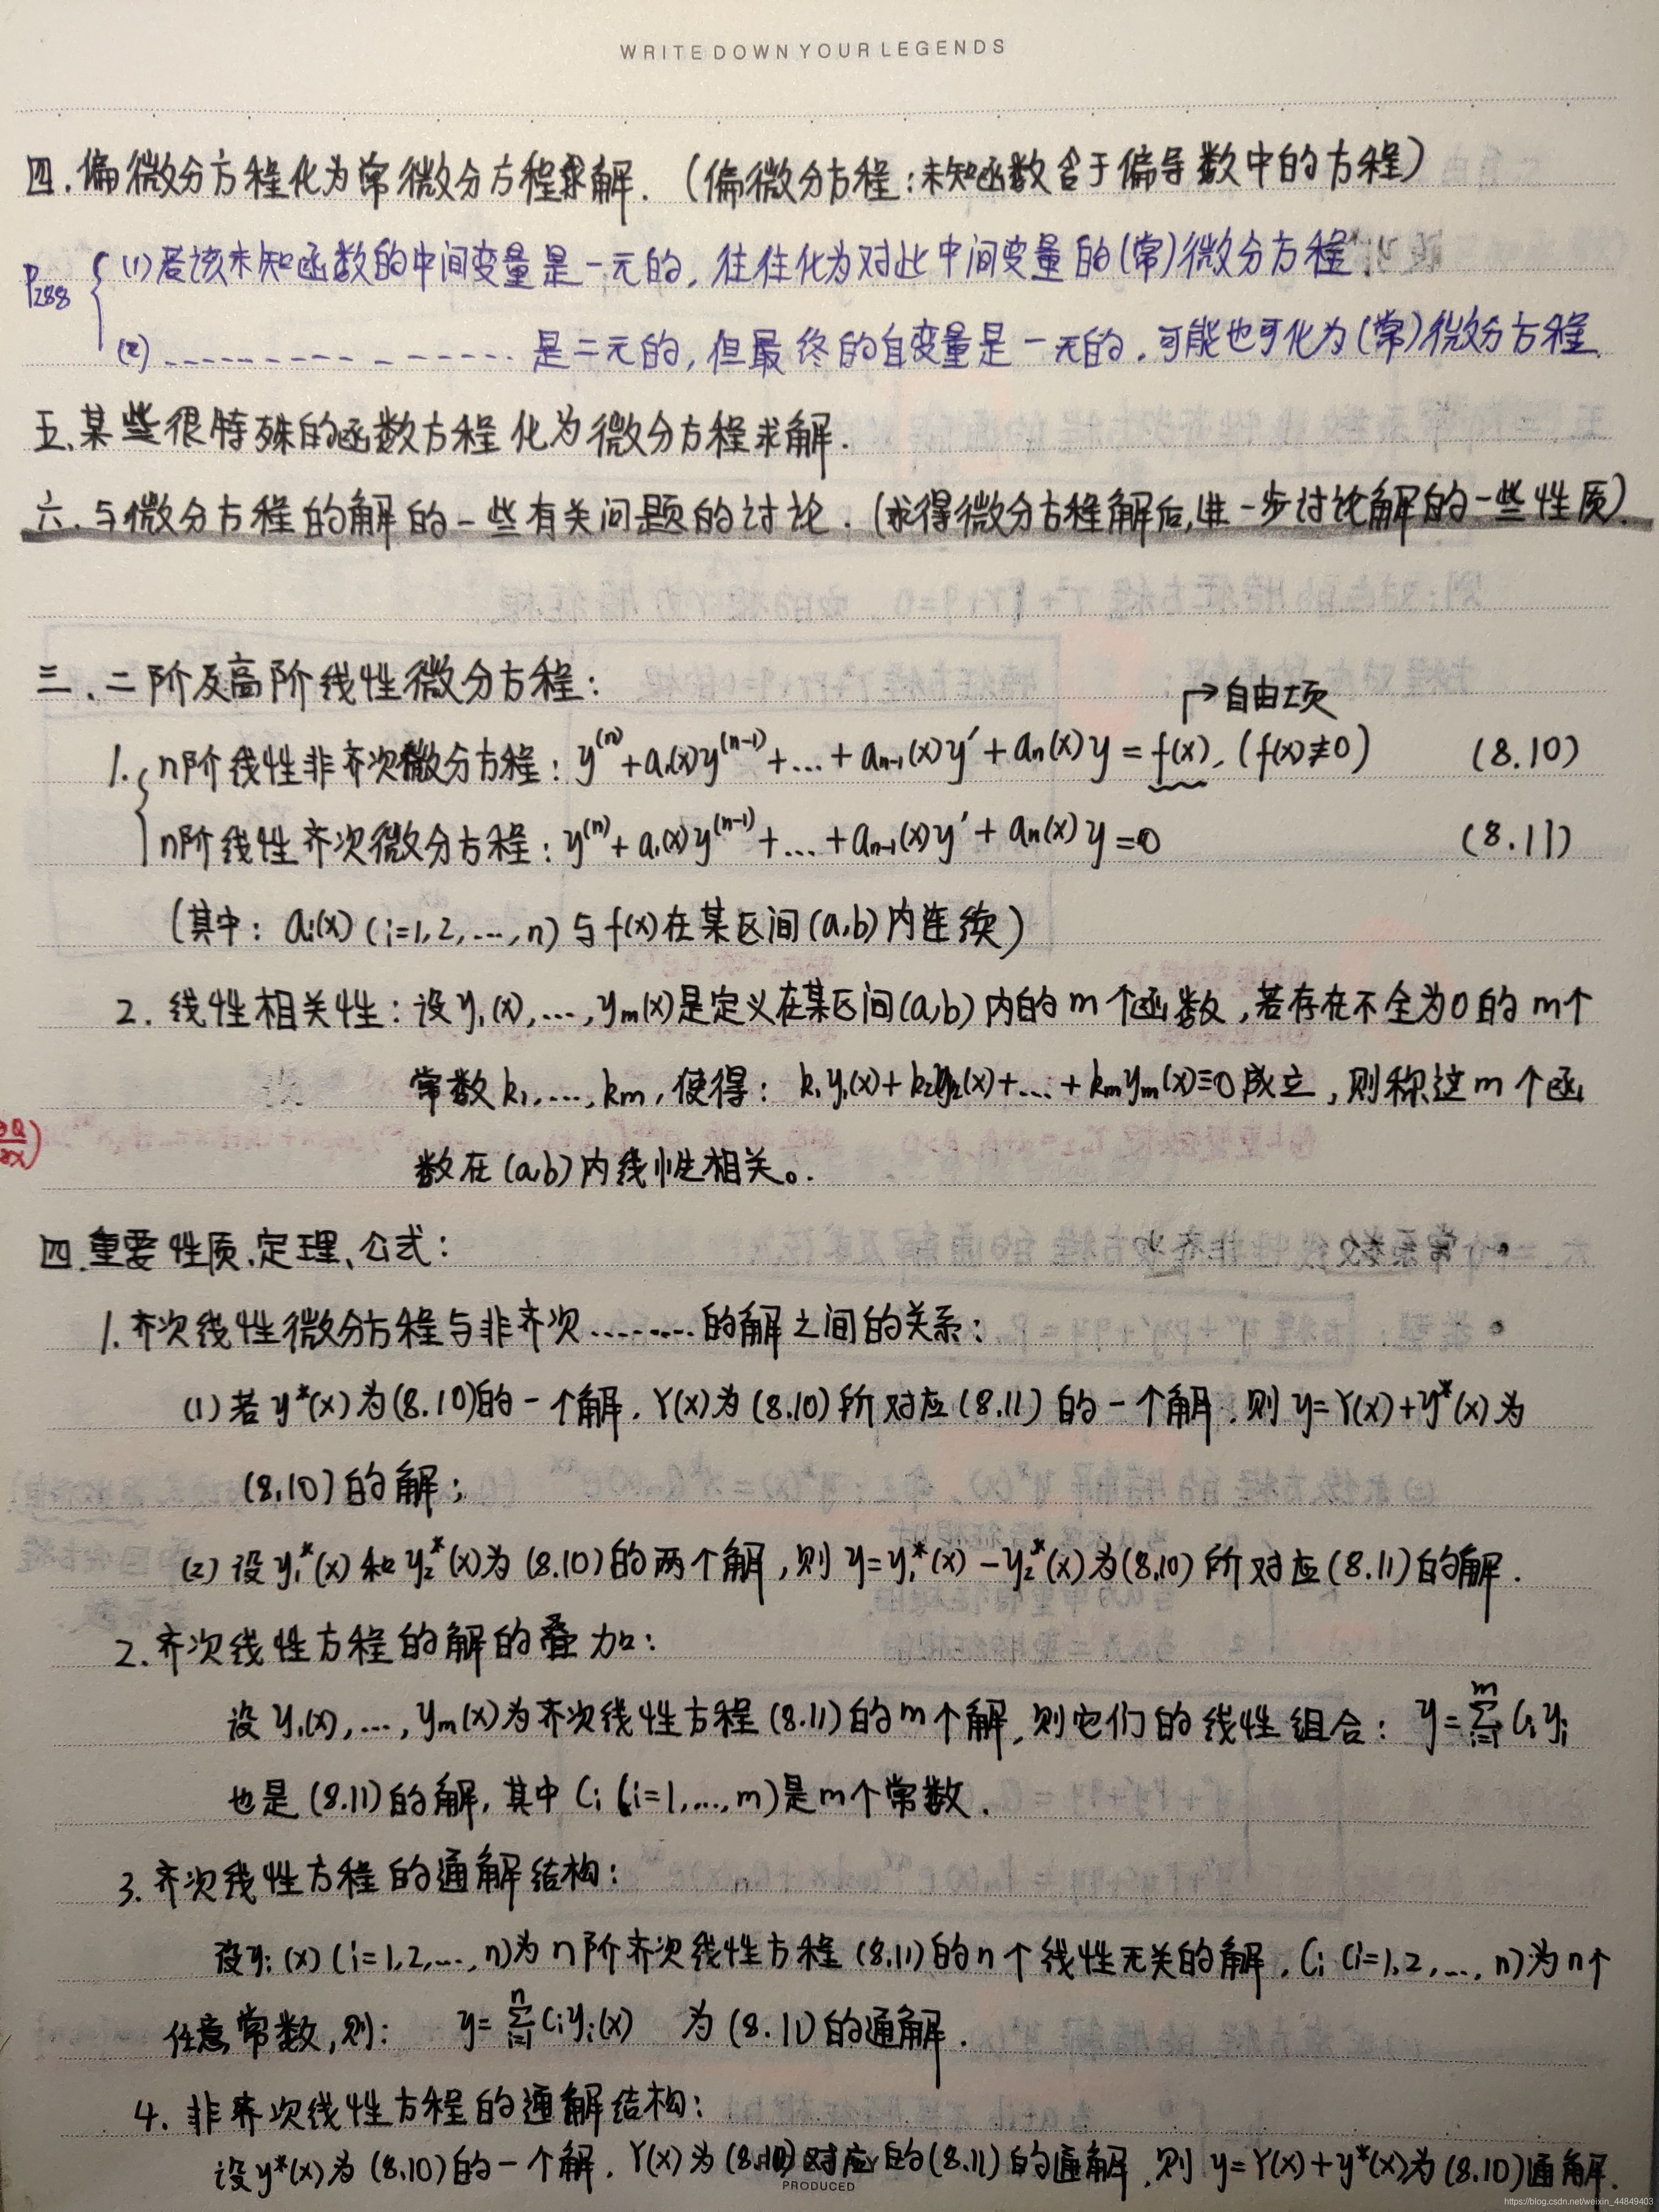 WRITE DOWN YOUR LEGENDS
四.偏微分方程化为常微分方程求解.(偏微分方程:未知函数含于偏导数中的方程)
P288 (1)若该未知函数的中间变量是一元的,往往化为对此中间变量的(常)微分方程;
(2)------------------是二元的,但最终的自变量是一元的.可能也可化为(常)微分方程.
五.某些很特殊的函数方程化为微分方程求解.
六.与微分方程的解的一些有关问题的讨论.(求得微分方程解后,进一步讨论解的一些性质).
三.二阶及高阶线性微分方程:
→自由项
1. n阶线性非齐次微分方程: y^(n)+a₁(x)y^(n-1)+...+aₙ₋₁(x)y′+aₙ(x)y=f(x), (f(x)≢0) (8.10)
n阶线性齐次微分方程: y^(n)+a₁(x)y^(n-1)+...+aₙ₋₁(x)y′+aₙ(x)y=0 (8.11)
(其中: aᵢ(x) (i=1,2,...,n) 与f(x)在某区间(a,b)内连续)
2. 线性相关性: 设y₁(x),...,yₘ(x)是定义在某区间(a,b)内的m个函数,若存在不全为0的m个
常数k₁,...,kₘ,使得: k₁y₁(x)+k₂y₂(x)+...+kₘyₘ(x)≡0成立,则称这m个函
∂Q/∂x)
数在(a,b)内线性相关。.
四.重要性质.定理、公式:
1.齐次线性微分方程与非齐次........的解之间的关系:
(1)若y*(x)为(8.10)的一个解.Y(x)为(8.10)所对应(8.11)的一个解.则y=Y(x)+y*(x)为
(8.10)的解;
(2)设y₁*(x)和y₂*(x)为(8.10)的两个解,则y=y₁*(x)-y₂*(x)为(8.10)所对应(8.11)的解.
2.齐次线性方程的解的叠加:
设y₁(x),...,yₘ(x)为齐次线性方程(8.11)的m个解,则它们的线性组合: y=∑ᵢ₌₁ᵐCᵢyᵢ
也是(8.11)的解,其中Cᵢ(i=1,...,m)是m个常数.
3.齐次线性方程的通解结构:
设yᵢ(x)(i=1,2,...,n)为n阶齐次线性方程(8.11)的n个线性无关的解,Cᵢ(i=1,2,...,n)为n个
任意常数,则: y=∑ᵢ₌₁ⁿCᵢyᵢ(x) 为(8.11)的通解.
4.非齐次线性方程的通解结构:
设y*(x)为(8.10)的一个解.Y(x)为(8.10)对应的(8.11)的通解.则y=Y(x)+y*(x)为(8.10)通解.
PRODUCED
https://blog.csdn.net/weixin_44849403